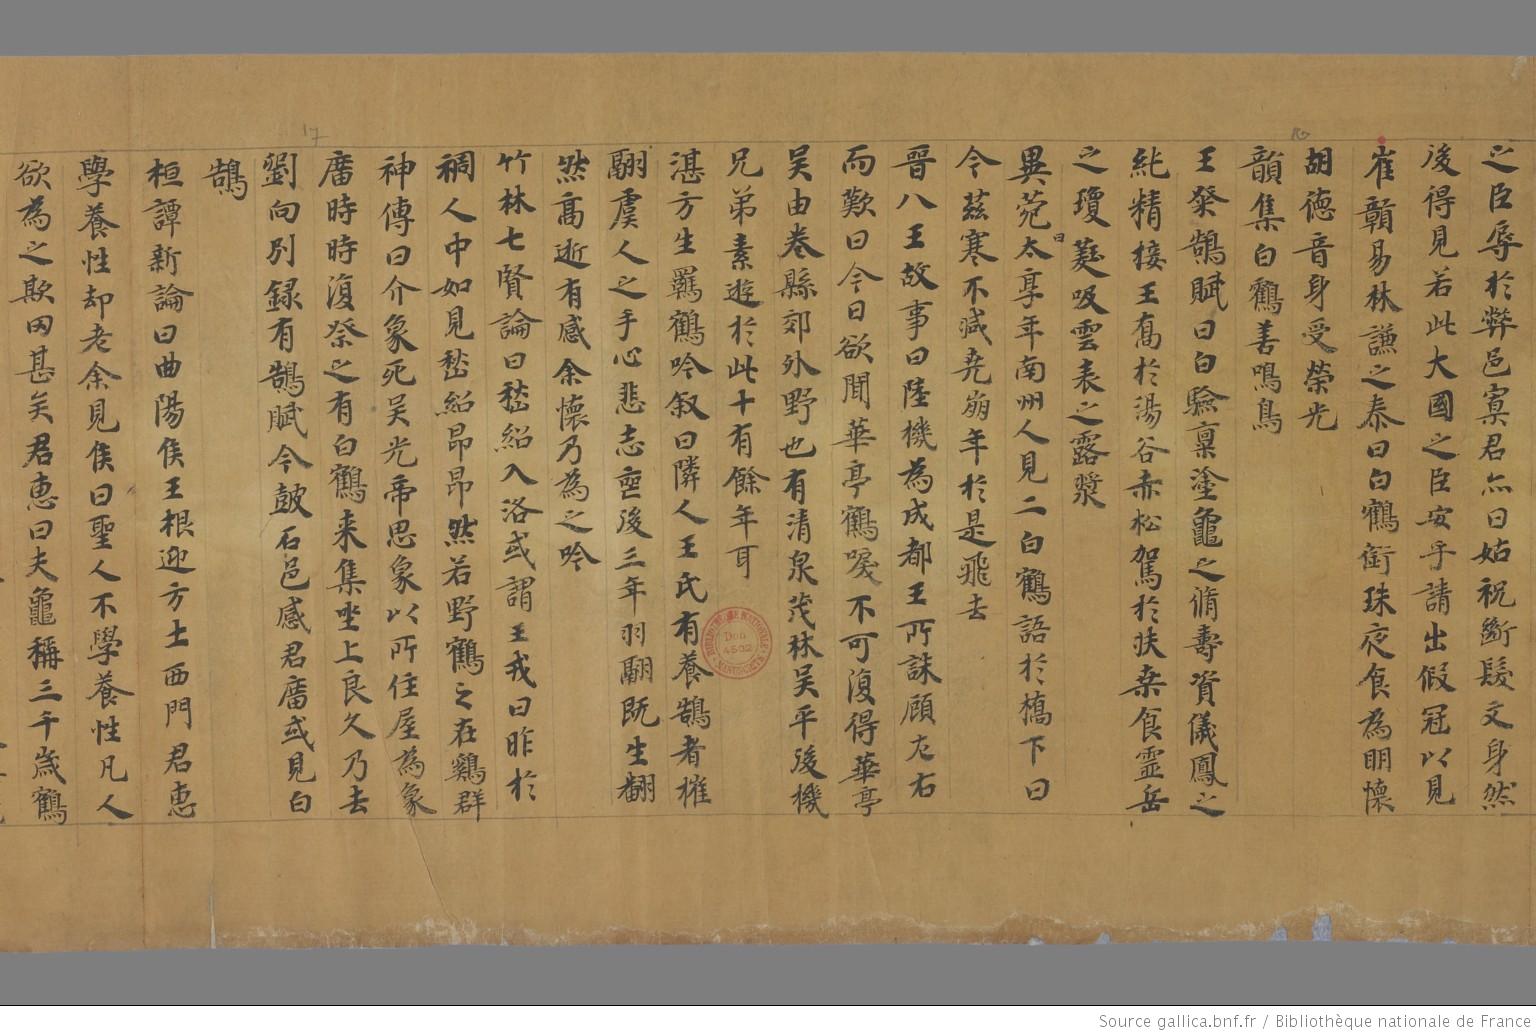 之臣辱於弊邑寡君亦曰姑祝斷髮文身然
後得見若此大國之臣安乎請出假冠以見
崔贛易林謙之泰曰白鶴銜珠夜食為明懷
胡德音身受榮光
韻集白鶴善鳴鳥
王粲鶴賦曰白驗稟塗龜之脩壽資儀鳳之
純精接王喬於湯谷赤松駕於扶桑食靈岳
之瓊蘂吸雲表之露漿
異苑曰太享年南州人見二白鶴語於橋下曰
今茲寒不減堯崩年於是飛去
晉八王故事曰陸機為成都王所誅顧左右
而歎曰今日欲聞華亭鶴唳不可復得華亭
吴由卷縣郊外野也有清泉茂林吴平後機
兄弟素遊於此十有餘年耳
湛方生羈鶴吟叙曰隣人王氏有養鵠者摧
翮虞人之手心悲志喪後三年羽翮既生翻
然高逝有感余懷乃為之吟
竹林七賢論曰嵇紹入洛或謂王戎曰昨於
稠人中如見嵇紹昂昂然若野鶴之在鷄群
神傳曰介象死吴光帝思象以所住屋為象
廣時時復祭之有白鶴来集坐上良久乃去
劉向別録有鵠賦今皷石邑感君廣或見白
鵠
桓譚新論曰曲陽侯王根迎方士西門君惠
學養性却老余見侯曰聖人不學養性凡人
欲為之欺罔甚矣君惠曰夫龜稱三千歲鶴
16
17
Don
4502
Source gallica.bnf.fr / Bibliothèque nationale de France